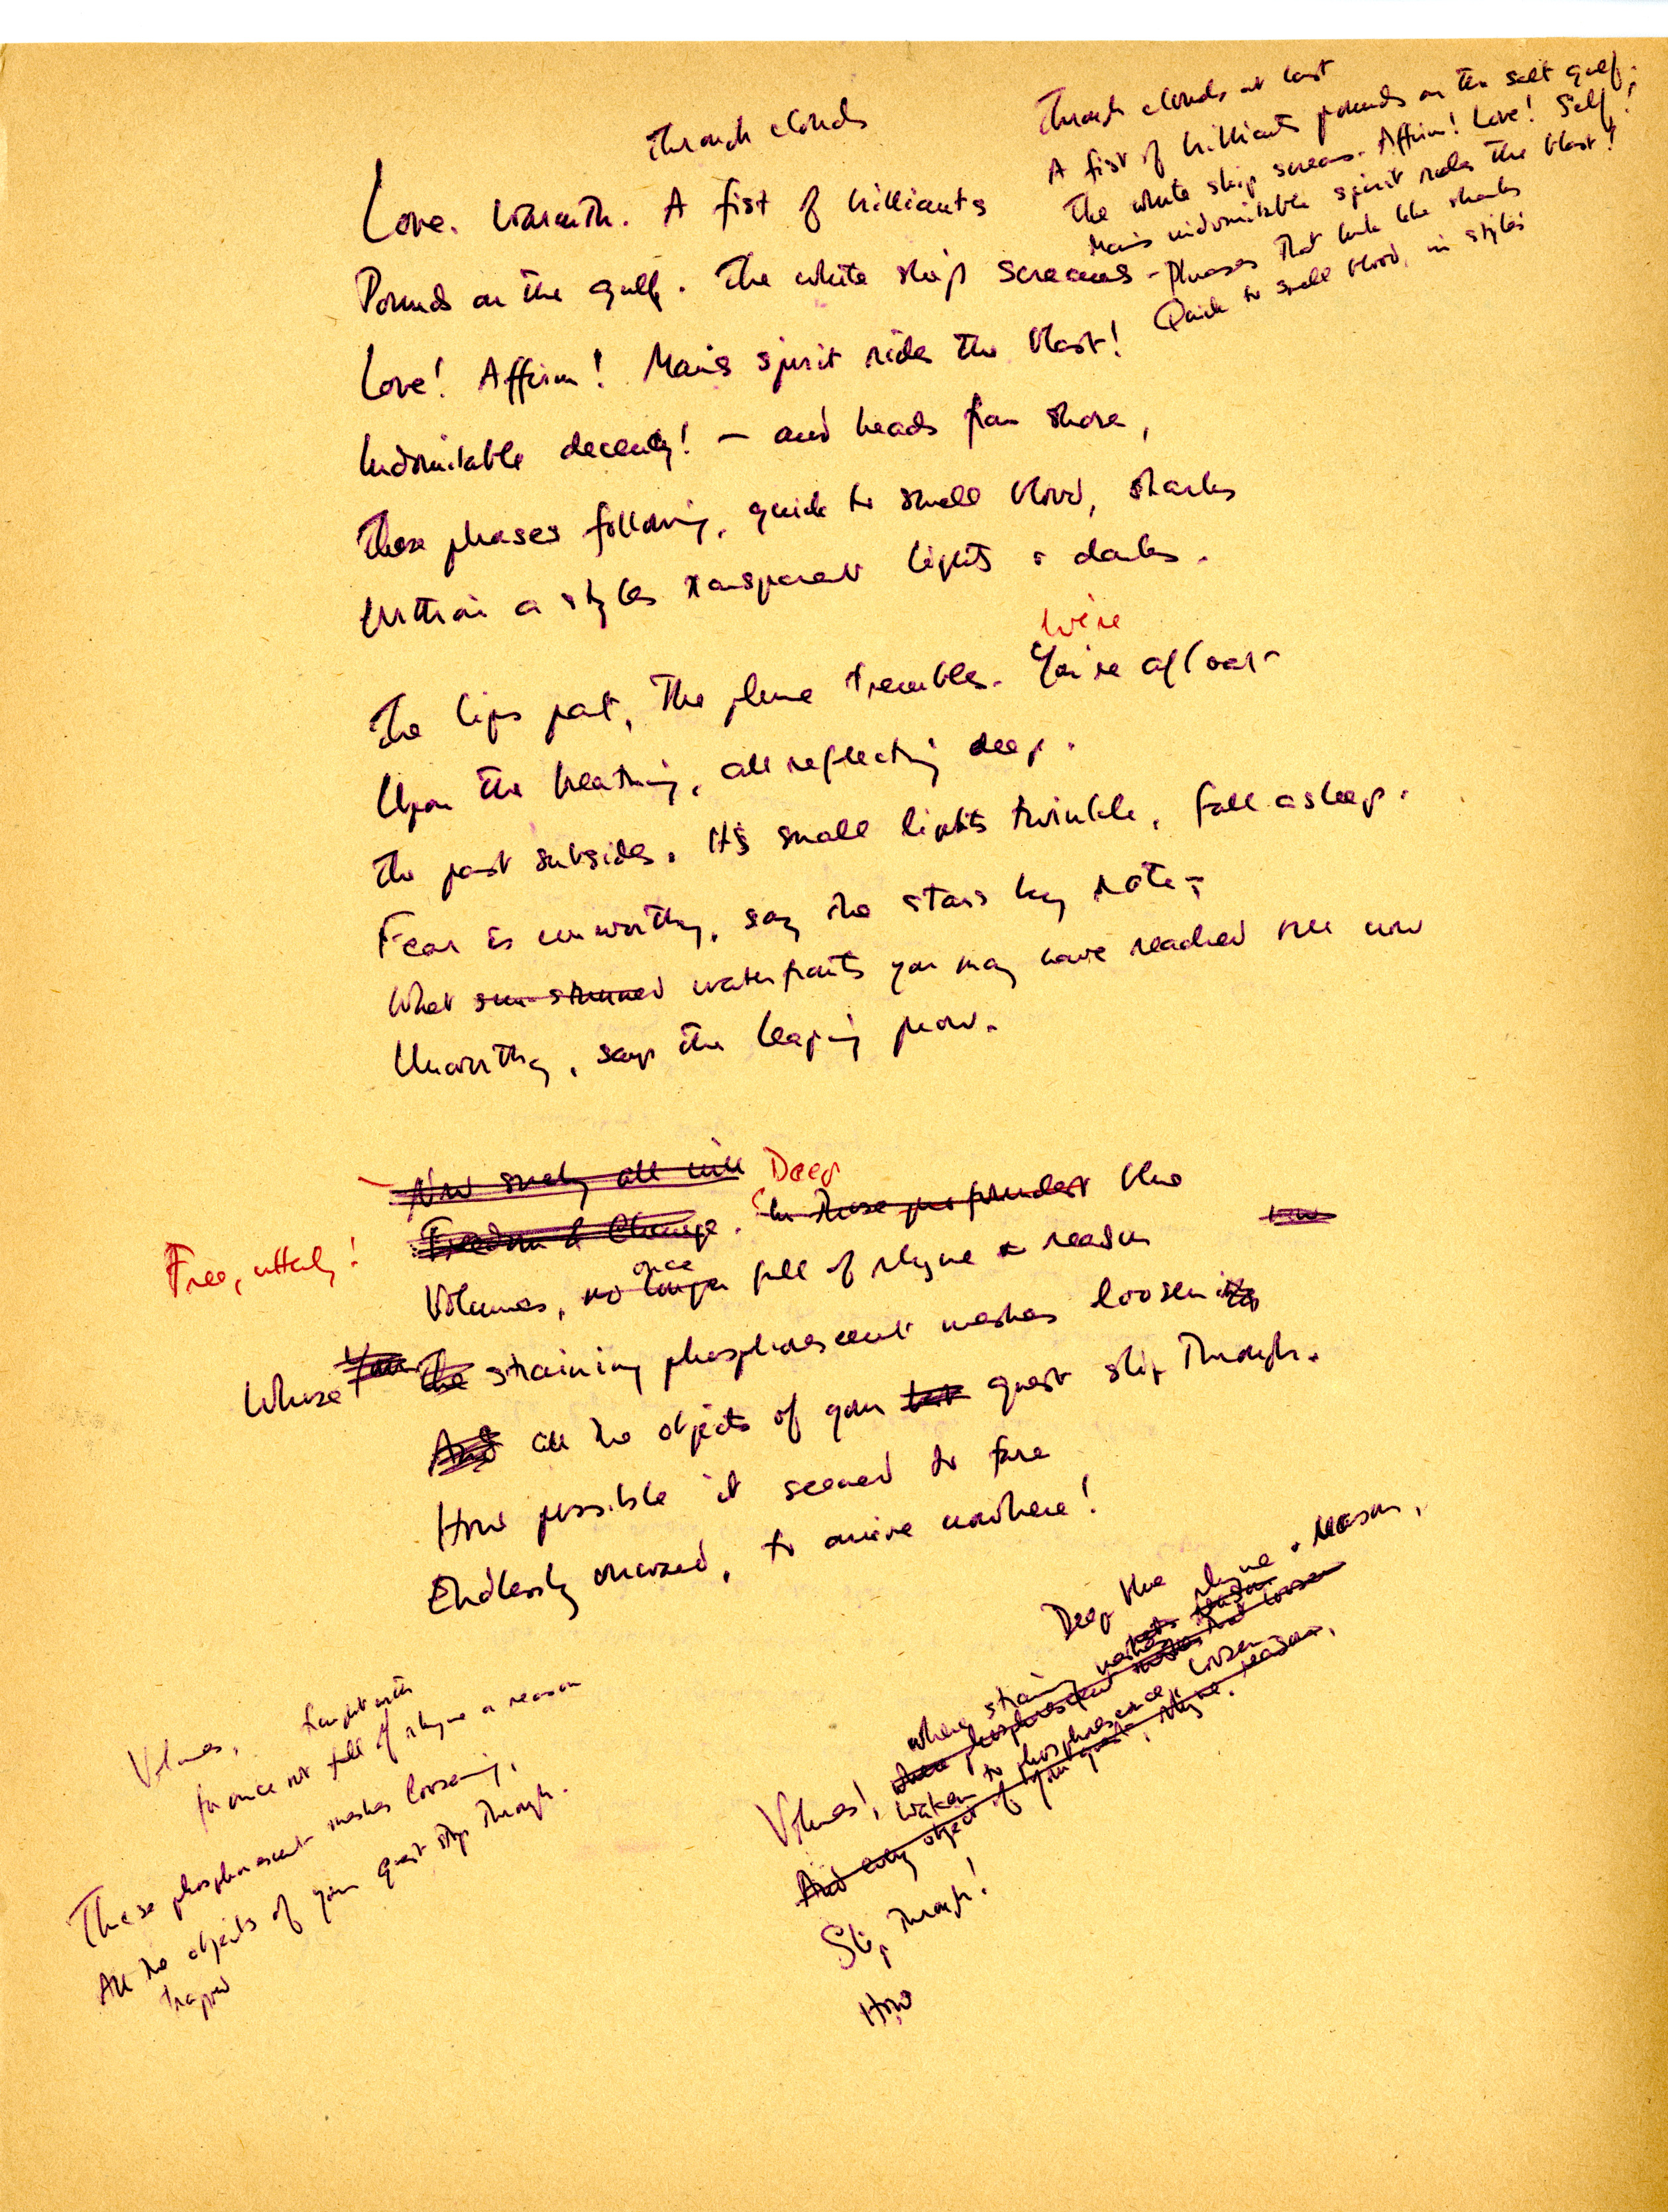 Through clouds
Love. Warmth. A fist of brilliants
Pounds on the gulf. The white ship screams –
Love! Affirm! Man's spirit rides the blast!
Indomitable decency! – and heads from shore,
These phrases following, quick to smell blood, sharks
Within a style's transparent lights & darks.
Through clouds at last
A fist of brilliants pounds on the salt gulf.
The white ship screams. Affirm! Love! Self!
Man's indomitable spirit rides the blast!
Phrases that lurk like sharks
Quick to smell blood, in style's
We're
The lips part, the plume trembles. You're afloat
Upon the breathing, all reflecting deep.
The past subsides. It's small lights twinkle, fall asleep.
Fear is unworthy, say the stars by rote;
What sun-stunned waterfronts you may have reached
Unworthy, says the leaping prow.
Now surely all will Deep
Freedom & Change. In those profoundest blue
Free, utterly!
once
Volumes, no longer full of rhyme & reason
Whose Your The straining phosphorescent meshes loosening
And all the objects of your quest slip through.
How possible it seemed to fare
Endlessly onward, to arrive nowhere!
Volumes, fraught with
for once not full of rhyme or reason
These phosphorescent meshes loosening,
All the objects of your quest slip through.
trapped
Deep blue rhyme & reason,
where straining meshes
phosphorescent that loosen
Volumes!, waken to phosphorescence, loosen
And every object of your quest, rhyme, reason,
Slip through!
How